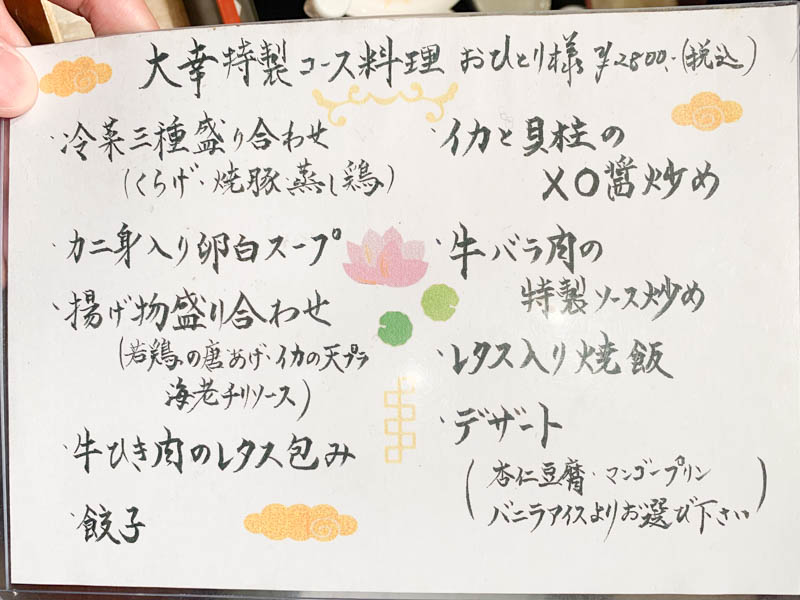 大幸特製コース料理 おひとり様 ¥2800.(税込)
・冷菜三種盛り合わせ
(くらげ・焼豚・蒸し鶏)
・カニ身入り卵白スープ
・揚げ物盛り合わせ
(若鶏の唐あげ・イカの天プラ
海老チリソース)
・牛ひき肉のレタス包み
・餃子
・イカと貝柱の
XO醤炒め
・牛バラ肉の
特製ソース炒め
・レタス入り焼飯
・デザート
(杏仁豆腐・マンゴープリン
バニラアイスよりお選び下さい)